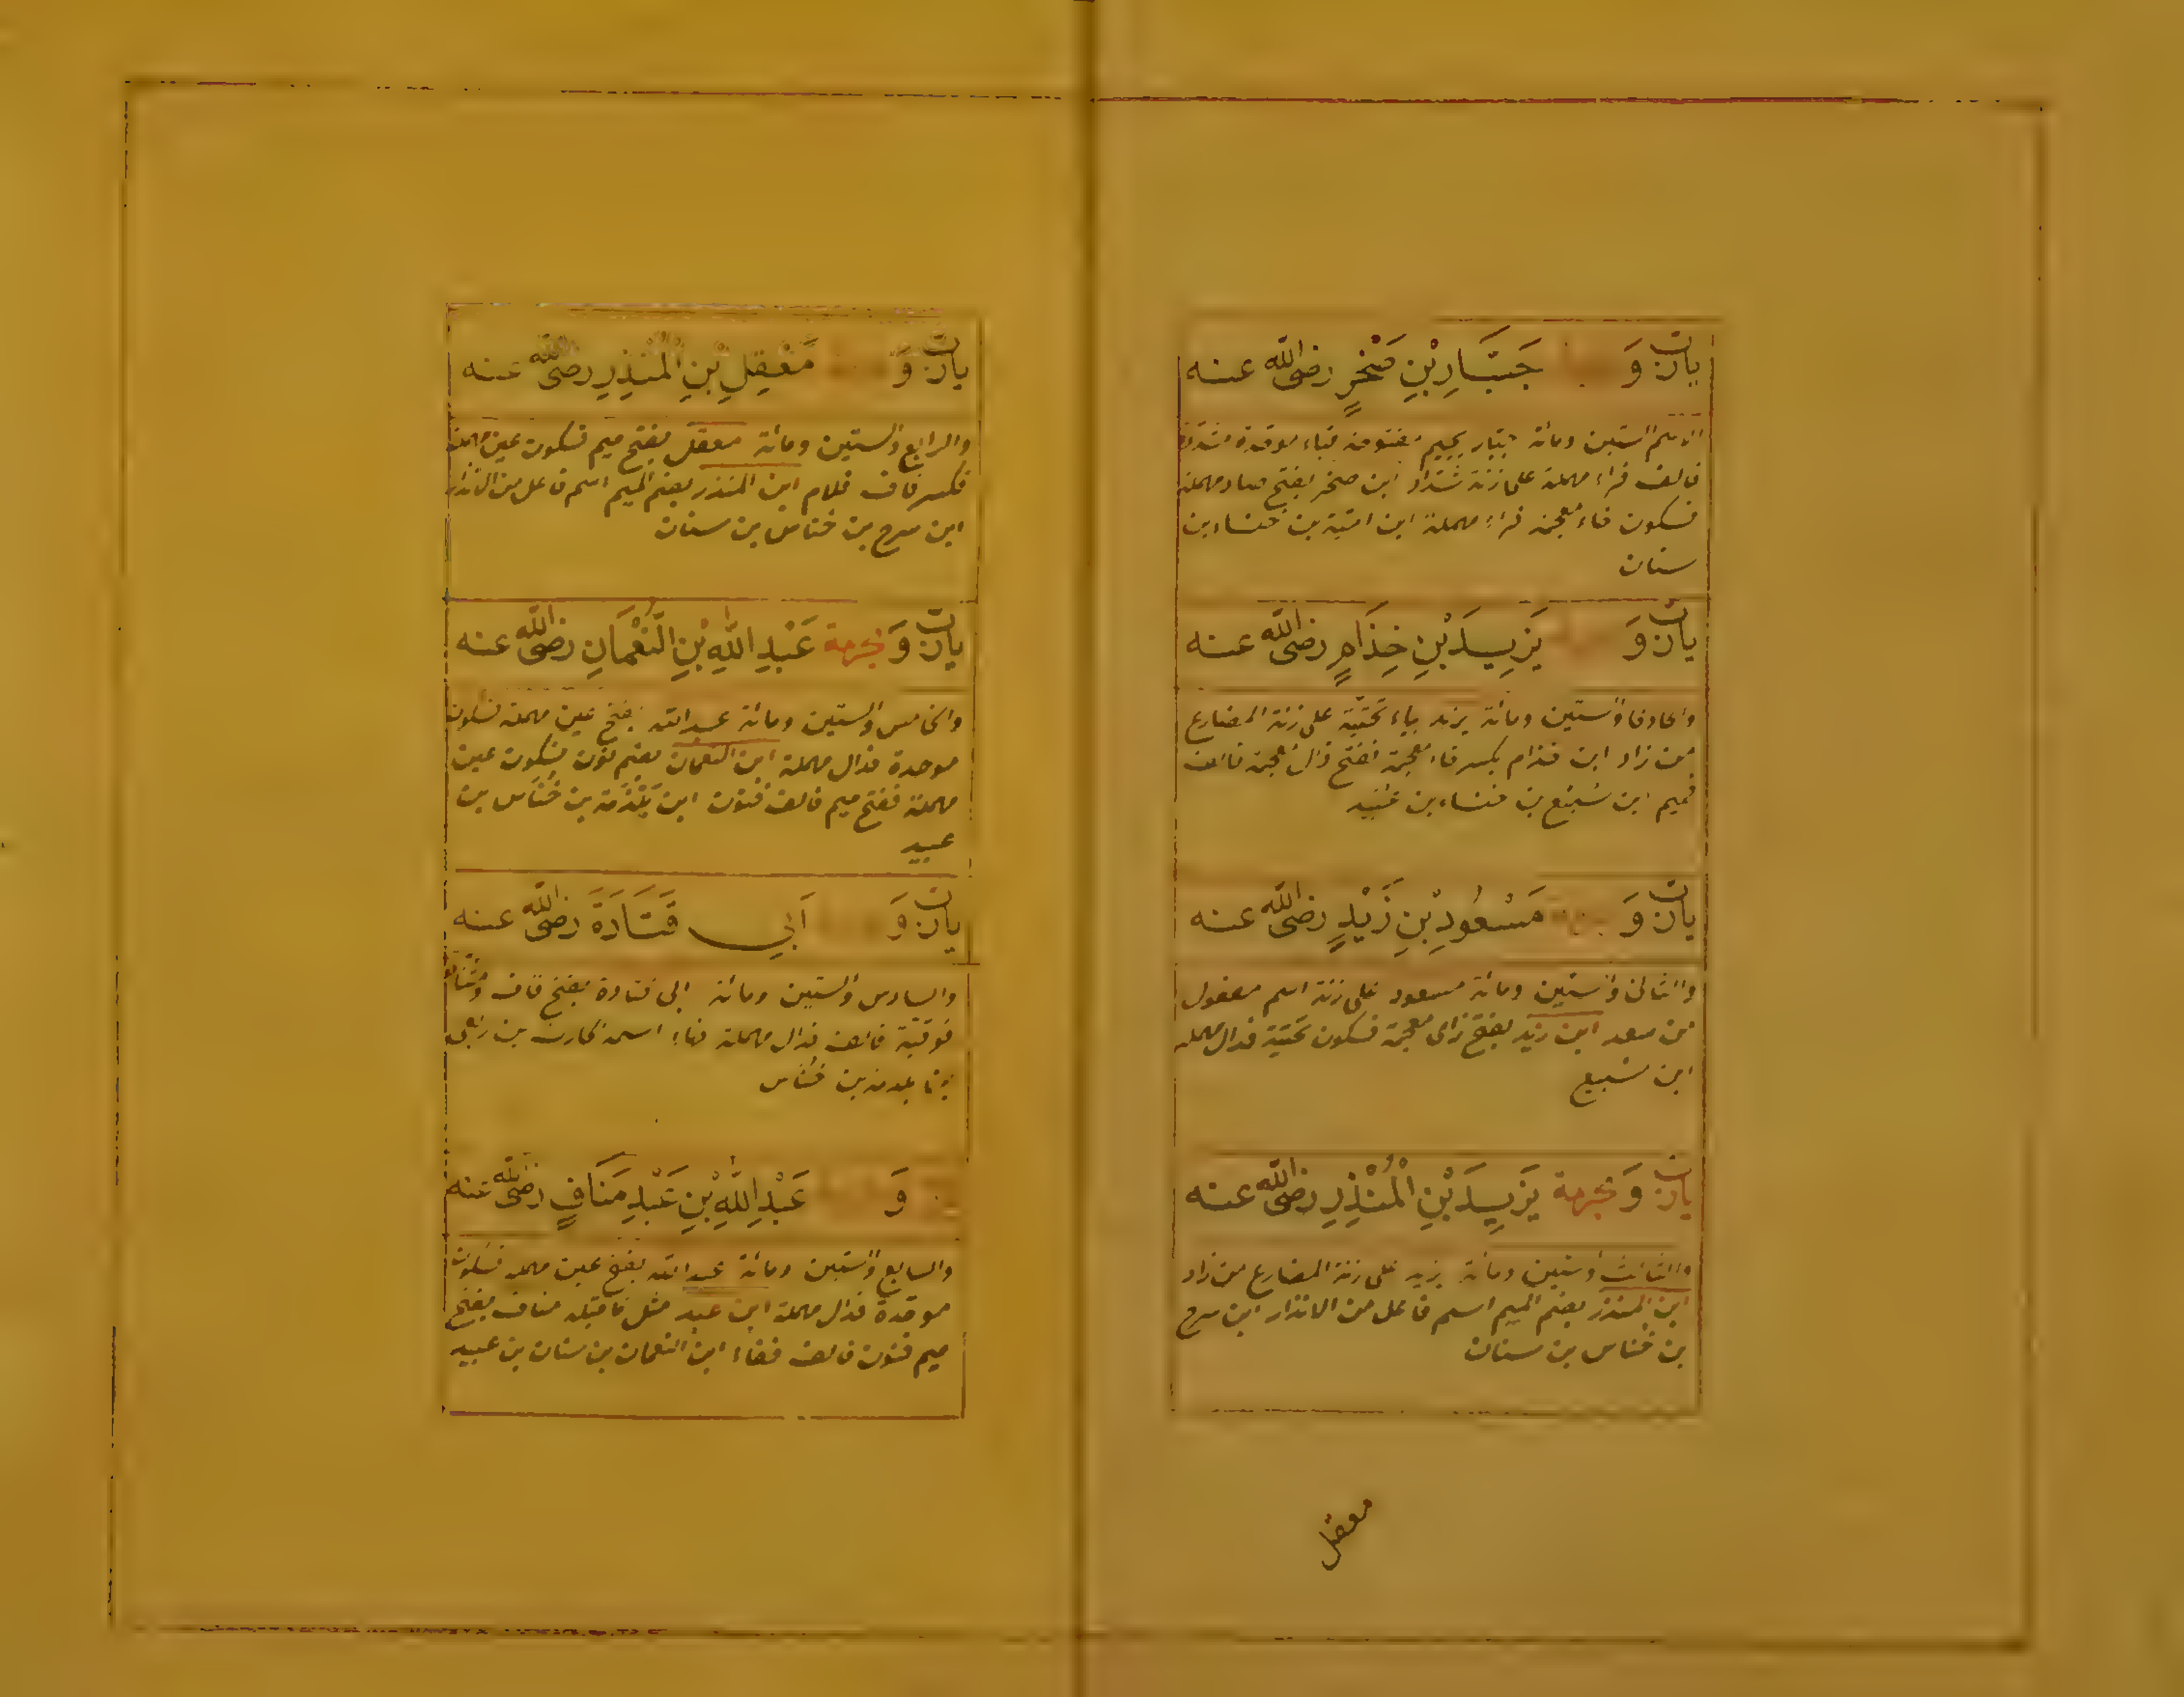 يارب وَ جَبَّارِ بْنِ صَخْرٍ رضى الله عنه
الستين ومائة جبار بجيم مفتوحة فباء موحدة مشددة
فالف فراء مهملة على زنة شدّاد ابن صخر بفتح صاد مهملة
فسكون خاء معجمة فراء مهملة ابن امية بن خنساء بن
سنان
يارب وَ يَزِيدَ بْنِ خِذَامٍ رضى الله عنه
والحادى والستين ومائة يزيد بياء تحتية على زنة المضارع
من زاد ابن خذام بكسر خاء معجمة ففتح ذال معجمة فالف
فميم ابن سبيع بن خنساء بن عبيد
يارب وَ مَسْعُودِ بْنِ زَيْدٍ رضى الله عنه
والثانى والستين ومائة مسعود على زنة اسم مفعول
من سعد ابن زيد بفتح زاى معجمة فسكون تحتية فدال مهملة
ابن سبيع
يارب وَ بحرمة يَزِيدَ بْنِ الْمُنْذِرِ رضى الله عنه
والثالث والستين ومائة يزيد على زنة المضارع من زاد
ابن المنذر بضم الميم اسم فاعل من الانذار ابن سرح
بن خناس بن سنان
معقل
يارب وَ مَعْقِلِ بْنِ الْمُنْذِرِ رضى الله عنه
والرابع والستين ومائة معقل بفتح ميم فسكون عين مهملة
فكسر قاف فلام ابن المنذر بضم الميم اسم فاعل من الانذار
ابن سرح بن خناس بن سنان
يارب وَ بحرمة عَبْدِ اللهِ بْنِ النُّعْمَانِ رضى الله عنه
والخامس والستين ومائة عبد الله بفتح عين مهملة فسكون
موحدة فدال مهملة ابن النعمان بضم نون فسكون عين
مهملة ففتح ميم فالف فنون ابن بلذمة بن خناس بن
عبيد
يارب وَ أَبِي قَتَادَةَ رضى الله عنه
والسادس والستين ومائة ابى قتادة بفتح قاف ومثناة
فوقية فالف فدال مهملة فهاء اسمه الحارث بن ربعى
بن بلدمة بن خناس
وَ عَبْدِ اللهِ بْنِ عَبْدِ مَنَافٍ رضى الله عنه
والسابع والستين ومائة عبد الله بفتح عين مهملة فسكون
موحدة فدال مهملة ابن عبد مثل ما قبله مناف بفتح
ميم فنون فالف ففاء ابن النعمان بن سنان بن عبيد